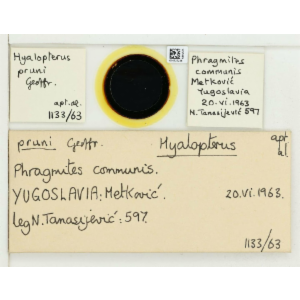 Hyalopterus
pruni
Geoffr.
apt. al.
1133/63
Phragmites
communis
Metković
Yugoslavia
20.vi.1963
N.Tanasijević 597
pruni Geoffr. Hyalopterus apt
al.
Phragmites communis.
YUGOSLAVIA: Metković. 20.vi.1963.
leg N. Tanasijević: 597.
1133/63